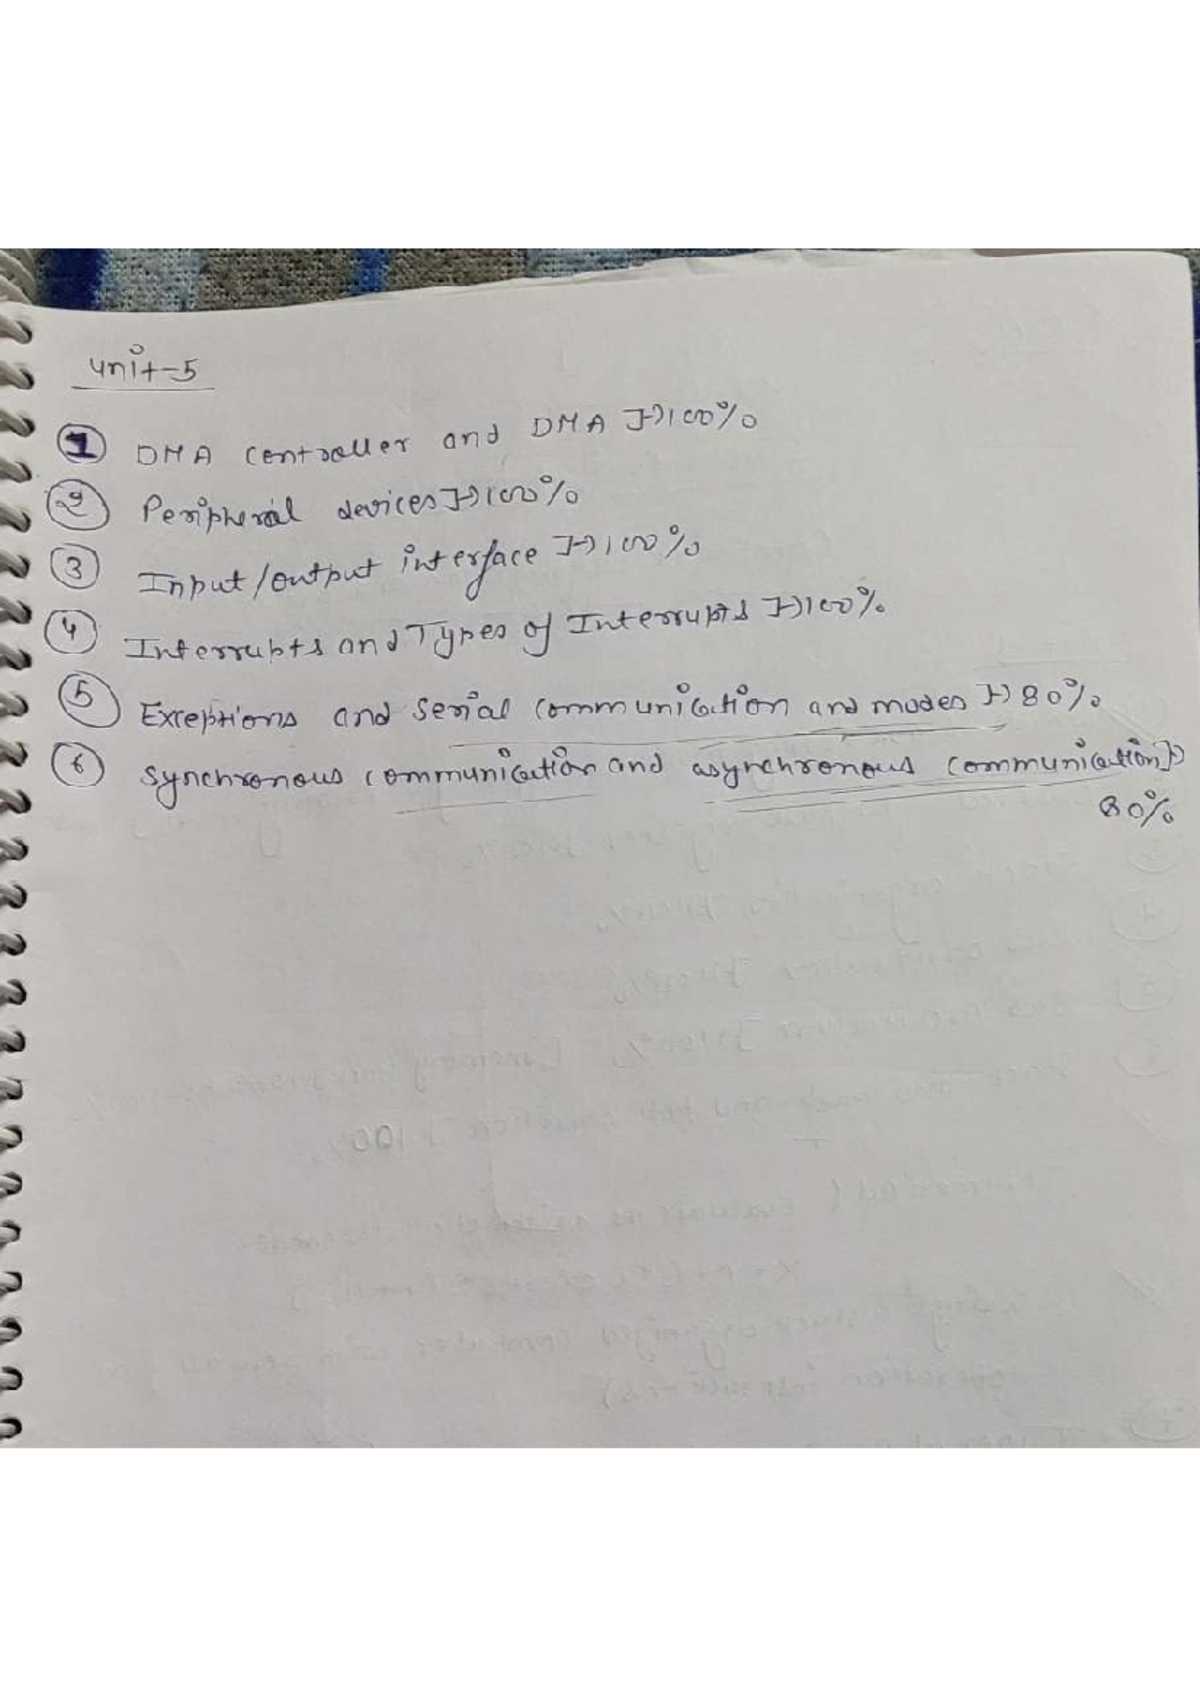 Unit-5
1 DMA controller and DMA → 100%
2 Peripheral devices → 100%
3 Input/output interface → 100%
4 Interrupts and Types of Interrupts → 100%
5 Exceptions and serial communication and modes → 80%
6 synchronous communication and asynchronous communication →
80%